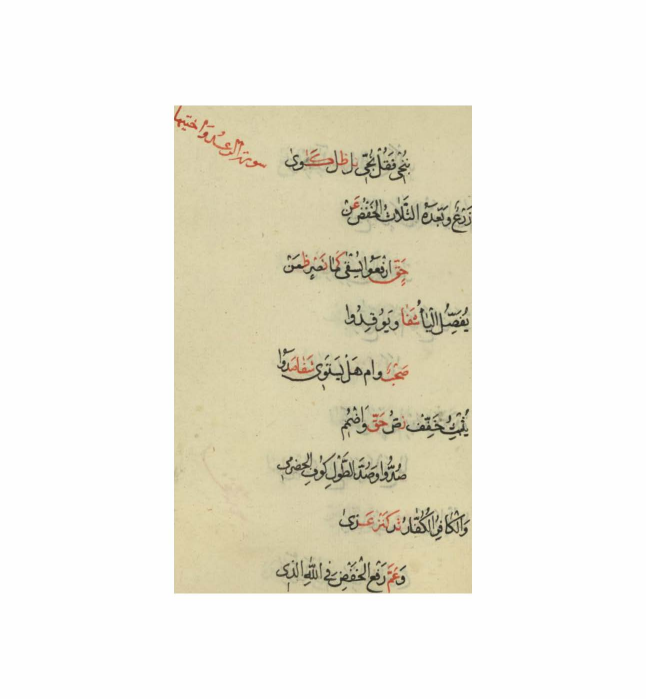 سورة الرعد واختيها
ننجي فقل نجّى نل ظل كوى
زرع وبعده الثلاث الخفض عن
حق ارفعوا يسقى كما نصر ظعن
يفضّل اليا شفا ويوقدوا
صحب وام هل يستوى شفا صدوا
يثبت خفف نص حق واضمم
صدوا وصد الطول كوف الحضرمى
والكافر الكفار شد كنز غذى
وعم رفع الخفض في الله الذى